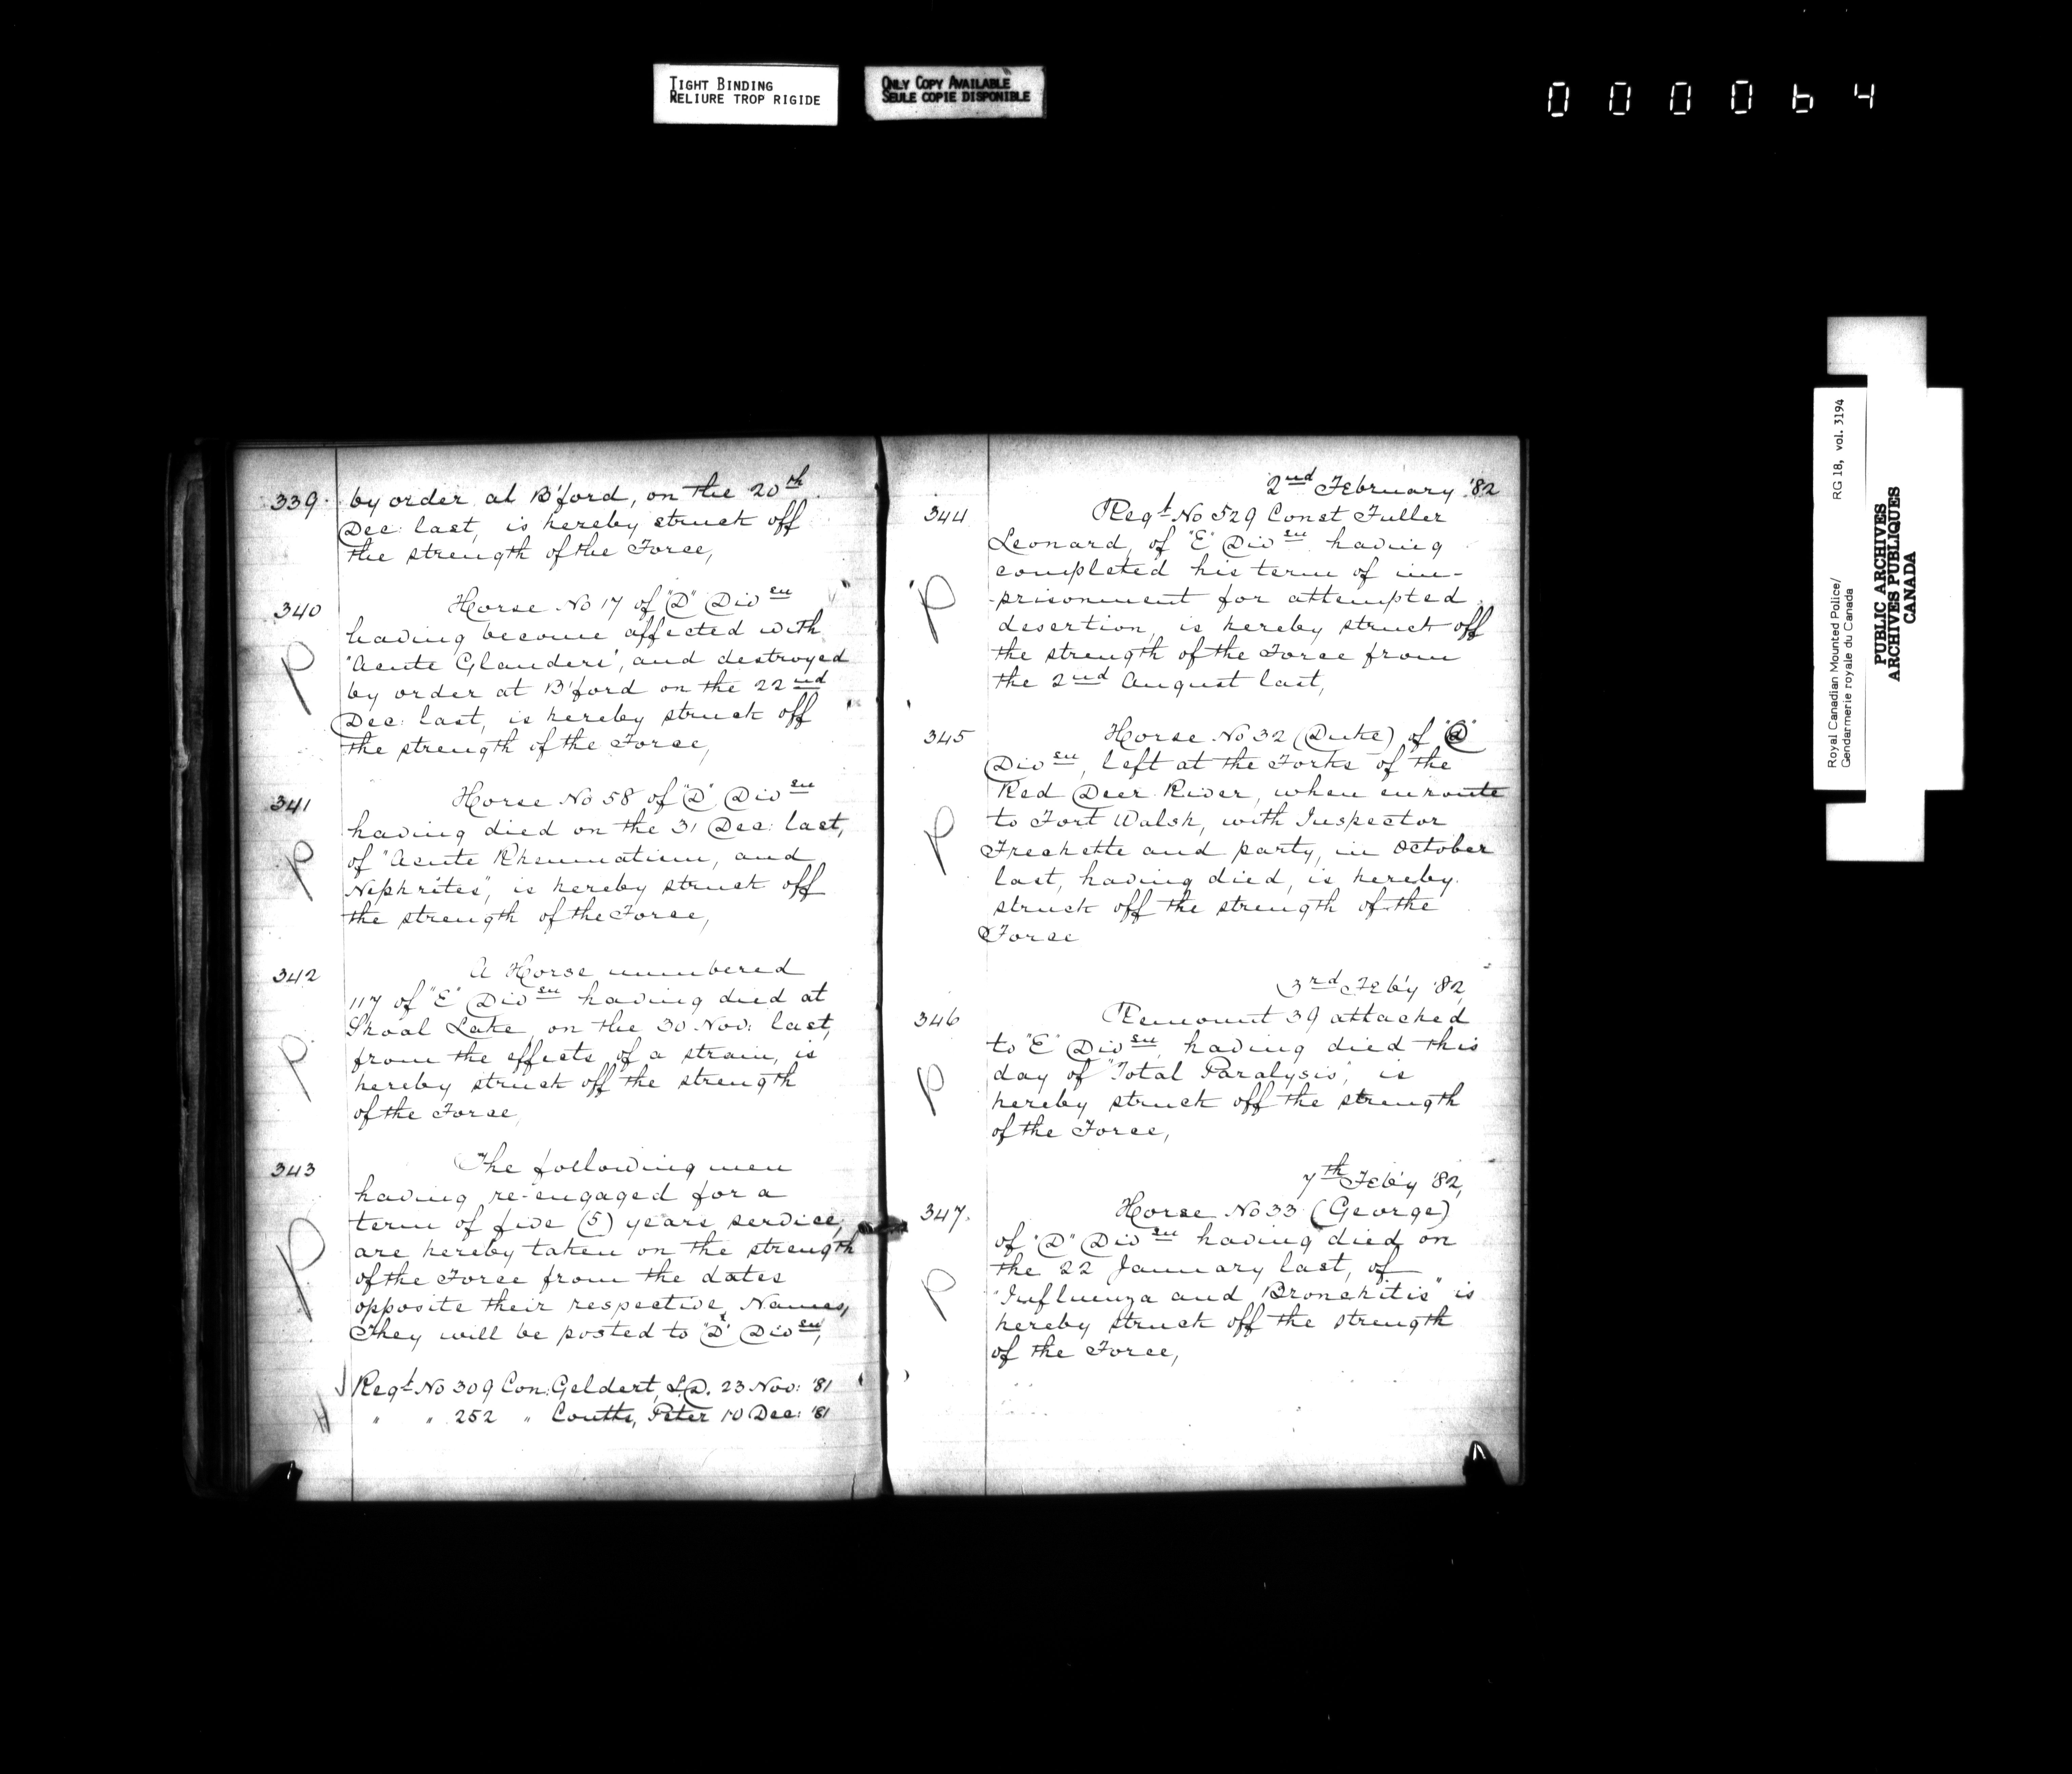 TIGHT BINDING
RELIURE TROP RIGIDE
ONLY COPY AVAILABLE
SEULE COPIE DISPONIBLE
000064
339. by order at B'ford, on the 20th
Dec: last, is hereby struck off
the strength of the Force,
340 Horse No 17 of "D" Divsn
having become affected with
P "Acute Glanders", and destroyed
by order at B'ford on the 22nd
Dec: last, is hereby struck off
the strength of the Force,
341 Horse No 58 of "D" Divsn
having died on the 31 Dec: last,
P of "Acute Rheumatism, and
Nephrites", is hereby struck off
the strength of the Force,
342 A Horse numbered
117 of "E" Divsn having died at
Shoal Lake on the 30 Nov: last,
P from the effects of a strain, is
hereby struck off the strength
of the Force,
343 The following men
having re-engaged for a
term of five (5) years service,
P are hereby taken on the strength
of the Force from the dates
opposite their respective Names,
They will be posted to "D" Divsn,
Regt No 309 Con: Geldert, L.D. 23 Nov: '81
" " 252 " Coutts, Peter 10 Dec: '81
2nd February '82
344 Regt No 529 Const Fuller
Leonard, of "E" Divsn having
completed his term of im-
P -prisonment for attempted
desertion, is hereby struck off
the strength of the Force from
the 2nd August last,
345 Horse No 32 (Duke) of "D"
Divsn, left at the Forks of the
Red Deer River, when enroute
to Fort Walsh, with Inspector
P Frechette and party, in October
last, having died, is hereby
struck off the strength of the
Force
3rd Feb'y '82,
346 Remount 39 attached
to "E" Divsn having died this
day of "Total Paralysis", is
P hereby struck off the strength
of the Force,
7th Feb'y '82,
347. Horse No 33 (George)
of "D" Divsn having died on
the 22 January last, of
P "Influenza and Bronchitis" is
hereby struck off the strength
of the Force,
Royal Canadian Mounted Police/ RG 18, vol. 3194
Gendarmerie royale du Canada
PUBLIC ARCHIVES
ARCHIVES PUBLIQUES
CANADA